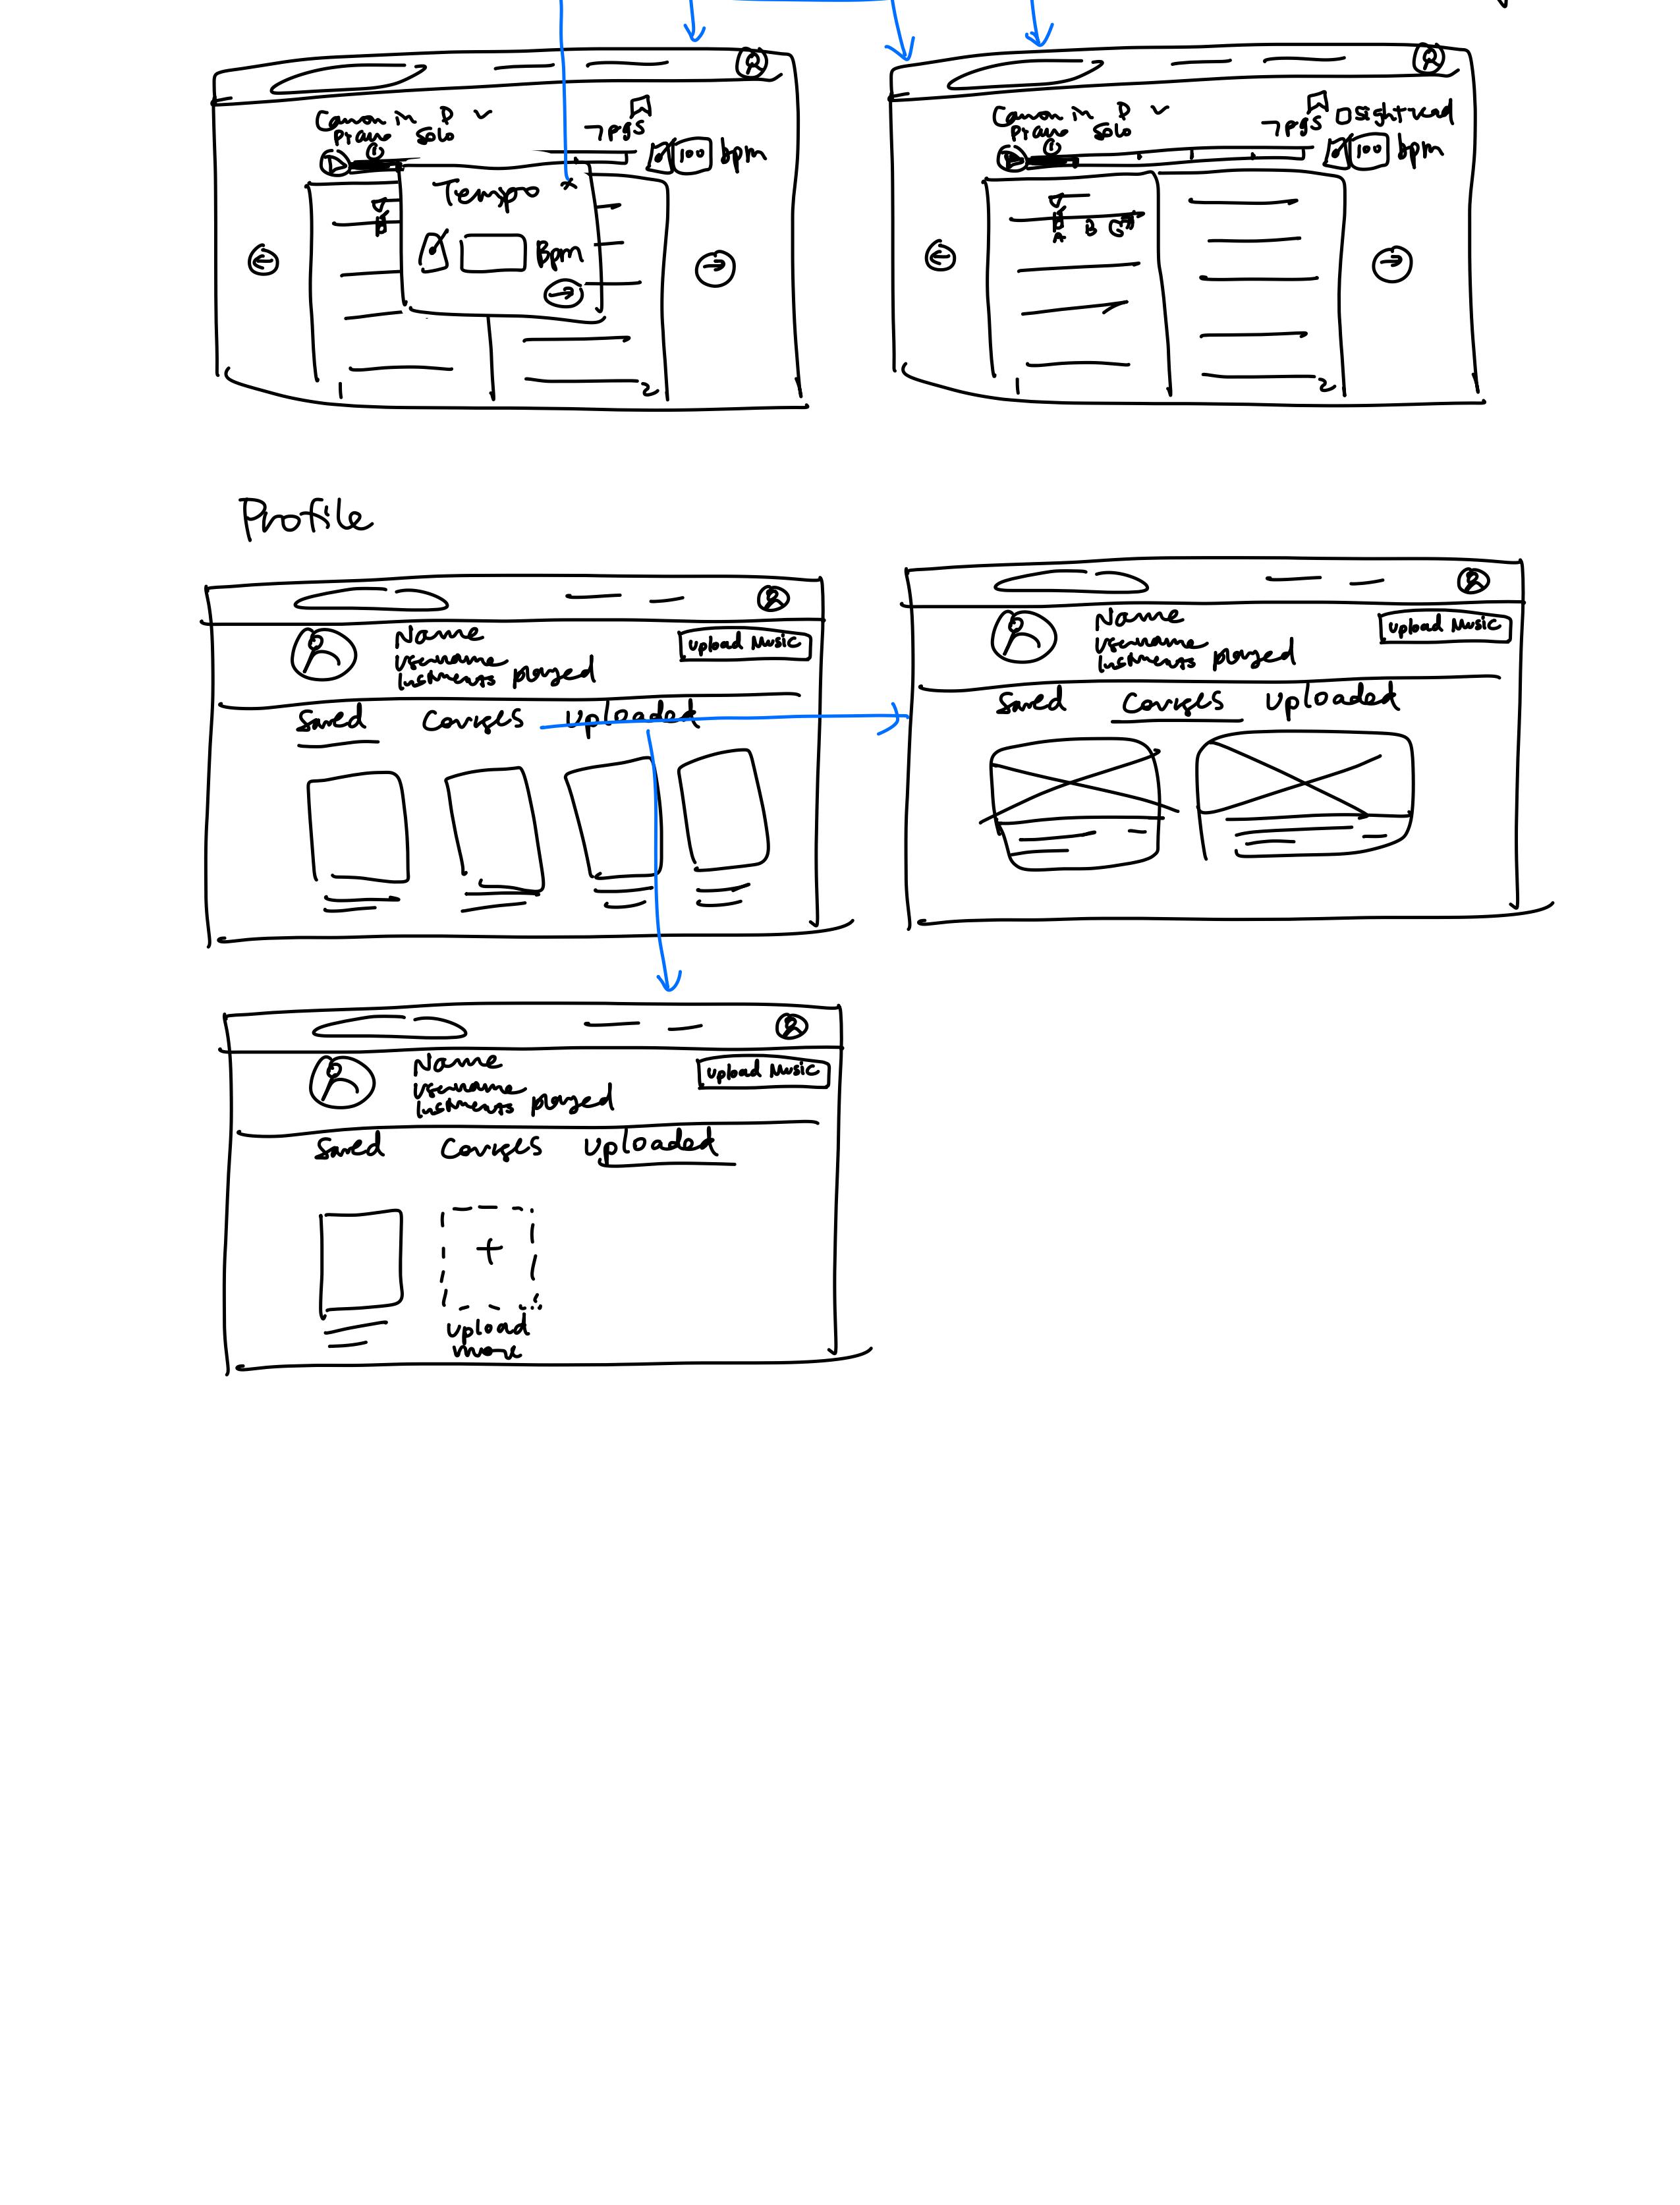 Canon in D
Piano Solo
7 pgs
100 bpm
Tempo x
Bpm
1
2
Canon in D
Piano Solo
7 pgs
sightread
100 bpm
A B G
1
2
Profile
Name
Username
Instruments played
Upload Music
Saved Courses Uploaded
Name
Username
Instruments played
Upload Music
Saved Courses Uploaded
Name
Username
Instruments played
Upload Music
Saved Courses Uploaded
+
upload
more